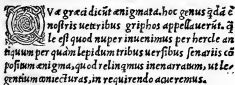 QVae græci dicũt ænigmata, hoc genus quidã è
nostris ueteribus griphos appellauerũt. Quã
le est quod nuper inuenimus per hercle an
tiquum per quàm lepidum tribus uersibus senariis cõ
positum ænigma, quod relinqmus inenarratum, ut le
gentium cõiecturas, in requirendo acueremus.